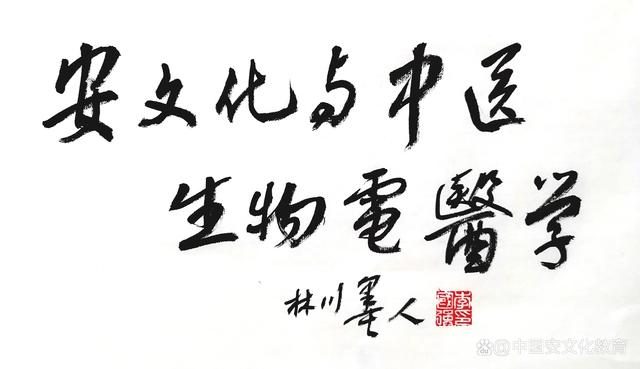 安文化与中医
生物電醫学
林川墨人
@中国安文化教育